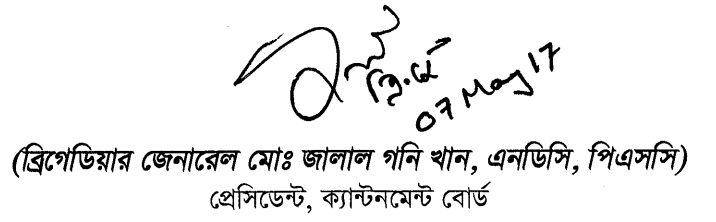 07 May 17
(ব্রিগেডিয়ার জেনারেল মোঃ জালাল গনি খান, এনডিসি, পিএসসি)
প্রেসিডেন্ট, ক্যান্টনমেন্ট বোর্ড